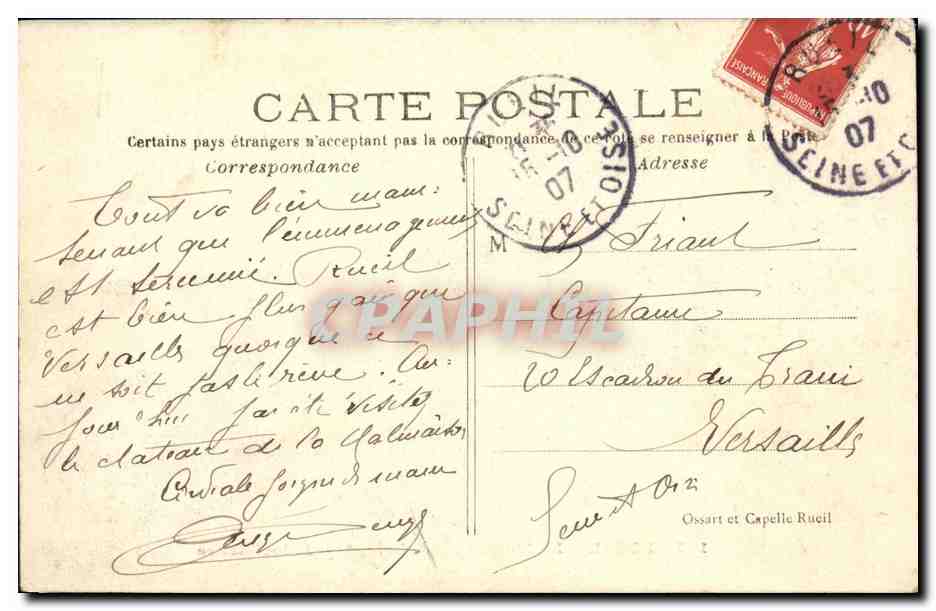 CARTE POSTALE
Certains pays étrangers n'acceptant pas la correspondance de ce côté se renseigner à la Poste
Correspondance
Adresse
Tout va bien main=
tenant que l'emménagement
est terminé. Rueil
est bien plus gai que
Versailles quoique ce
ne soit pas le rêve. Au=
jour'hui j'ai été visiter
le château de la Malmaison
Cordiale poignée de main
M
Friant
Capitaine
20 Escadron du Train
Versailles
Seine et Oise
Ossart et Capelle Rueil
SEINE ET OISE
10
07
REPUBLIQUE FRANÇAISE
10
07
SEINE ET O
CPAPHIL